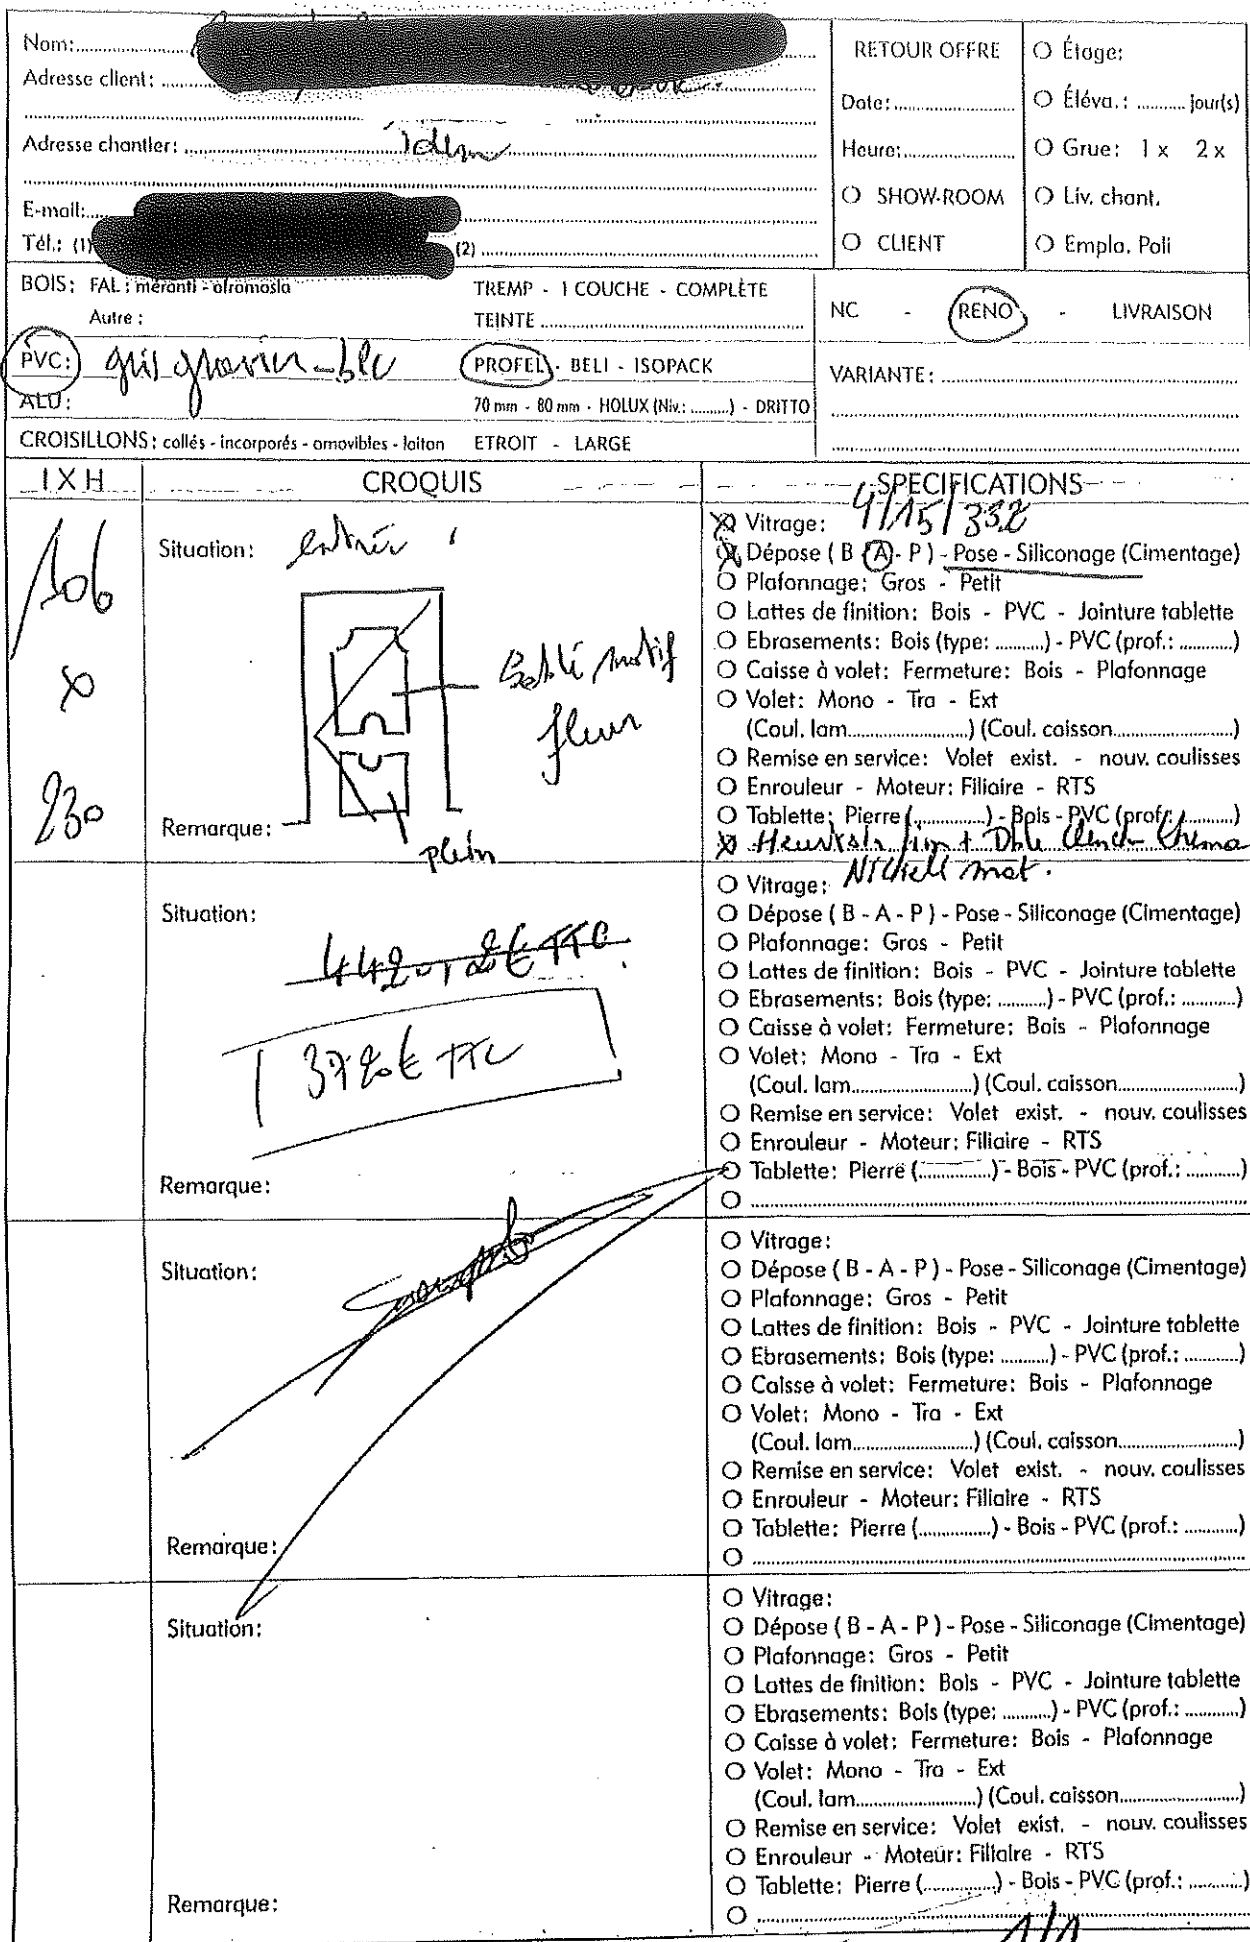 Nom:
RETOUR OFFRE
O Étage:
Adresse client:
Date:
O Éléva.: jour(s)
Adresse chantier: idem
Heure:
O Grue: 1 x 2 x
E-mail:
O SHOW-ROOM
O Liv. chant.
Tél.: (1) (2)
O CLIENT
O Empla. Poli
BOIS: FAL : méranti - afromosia
TREMP - 1 COUCHE - COMPLÈTE
Autre :
TEINTE
NC - RENO - LIVRAISON
PVC: gris gravier - blc
PROFEL - BELI - ISOPACK
VARIANTE:
ALU:
70 mm - 80 mm - HOLUX (Niv.: ) - DRITTO
CROISILLONS: collés - incorporés - amovibles - laiton ETROIT - LARGE
I X H
CROQUIS
SPECIFICATIONS
106
x
230
Situation: entrée
Sablé motif
fleur
plein
Remarque:
X Vitrage: 4/15/332
X Dépose ( B - A - P ) - Pose - Siliconage (Cimentage)
O Plafonnage: Gros - Petit
O Lattes de finition: Bois - PVC - Jointure tablette
O Ebrasements: Bois (type: ) - PVC (prof.: )
O Caisse à volet: Fermeture: Bois - Plafonnage
O Volet: Mono - Tra - Ext
(Coul. lam. ) (Coul. caisson )
O Remise en service: Volet exist. - nouv. coulisses
O Enrouleur - Moteur: Filiaire - RTS
O Tablette: Pierre ( ) - Bois - PVC (prof.: )
X + Dble
mat.
Situation:
442 € TTC
3720€ TTC
Remarque:
O Vitrage:
O Dépose ( B - A - P ) - Pose - Siliconage (Cimentage)
O Plafonnage: Gros - Petit
O Lattes de finition: Bois - PVC - Jointure tablette
O Ebrasements: Bois (type: ) - PVC (prof.: )
O Caisse à volet: Fermeture: Bois - Plafonnage
O Volet: Mono - Tra - Ext
(Coul. lam. ) (Coul. caisson )
O Remise en service: Volet exist. - nouv. coulisses
O Enrouleur - Moteur: Filiaire - RTS
O Tablette: Pierre ( ) - Bois - PVC (prof.: )
O
Situation:
Remarque:
O Vitrage:
O Dépose ( B - A - P ) - Pose - Siliconage (Cimentage)
O Plafonnage: Gros - Petit
O Lattes de finition: Bois - PVC - Jointure tablette
O Ebrasements: Bois (type: ) - PVC (prof.: )
O Caisse à volet: Fermeture: Bois - Plafonnage
O Volet: Mono - Tra - Ext
(Coul. lam. ) (Coul. caisson )
O Remise en service: Volet exist. - nouv. coulisses
O Enrouleur - Moteur: Filiaire - RTS
O Tablette: Pierre ( ) - Bois - PVC (prof.: )
O
Situation:
Remarque:
O Vitrage:
O Dépose ( B - A - P ) - Pose - Siliconage (Cimentage)
O Plafonnage: Gros - Petit
O Lattes de finition: Bois - PVC - Jointure tablette
O Ebrasements: Bois (type: ) - PVC (prof.: )
O Caisse à volet: Fermeture: Bois - Plafonnage
O Volet: Mono - Tra - Ext
(Coul. lam. ) (Coul. caisson )
O Remise en service: Volet exist. - nouv. coulisses
O Enrouleur - Moteur: Filiaire - RTS
O Tablette: Pierre ( ) - Bois - PVC (prof.: )
O
1/1